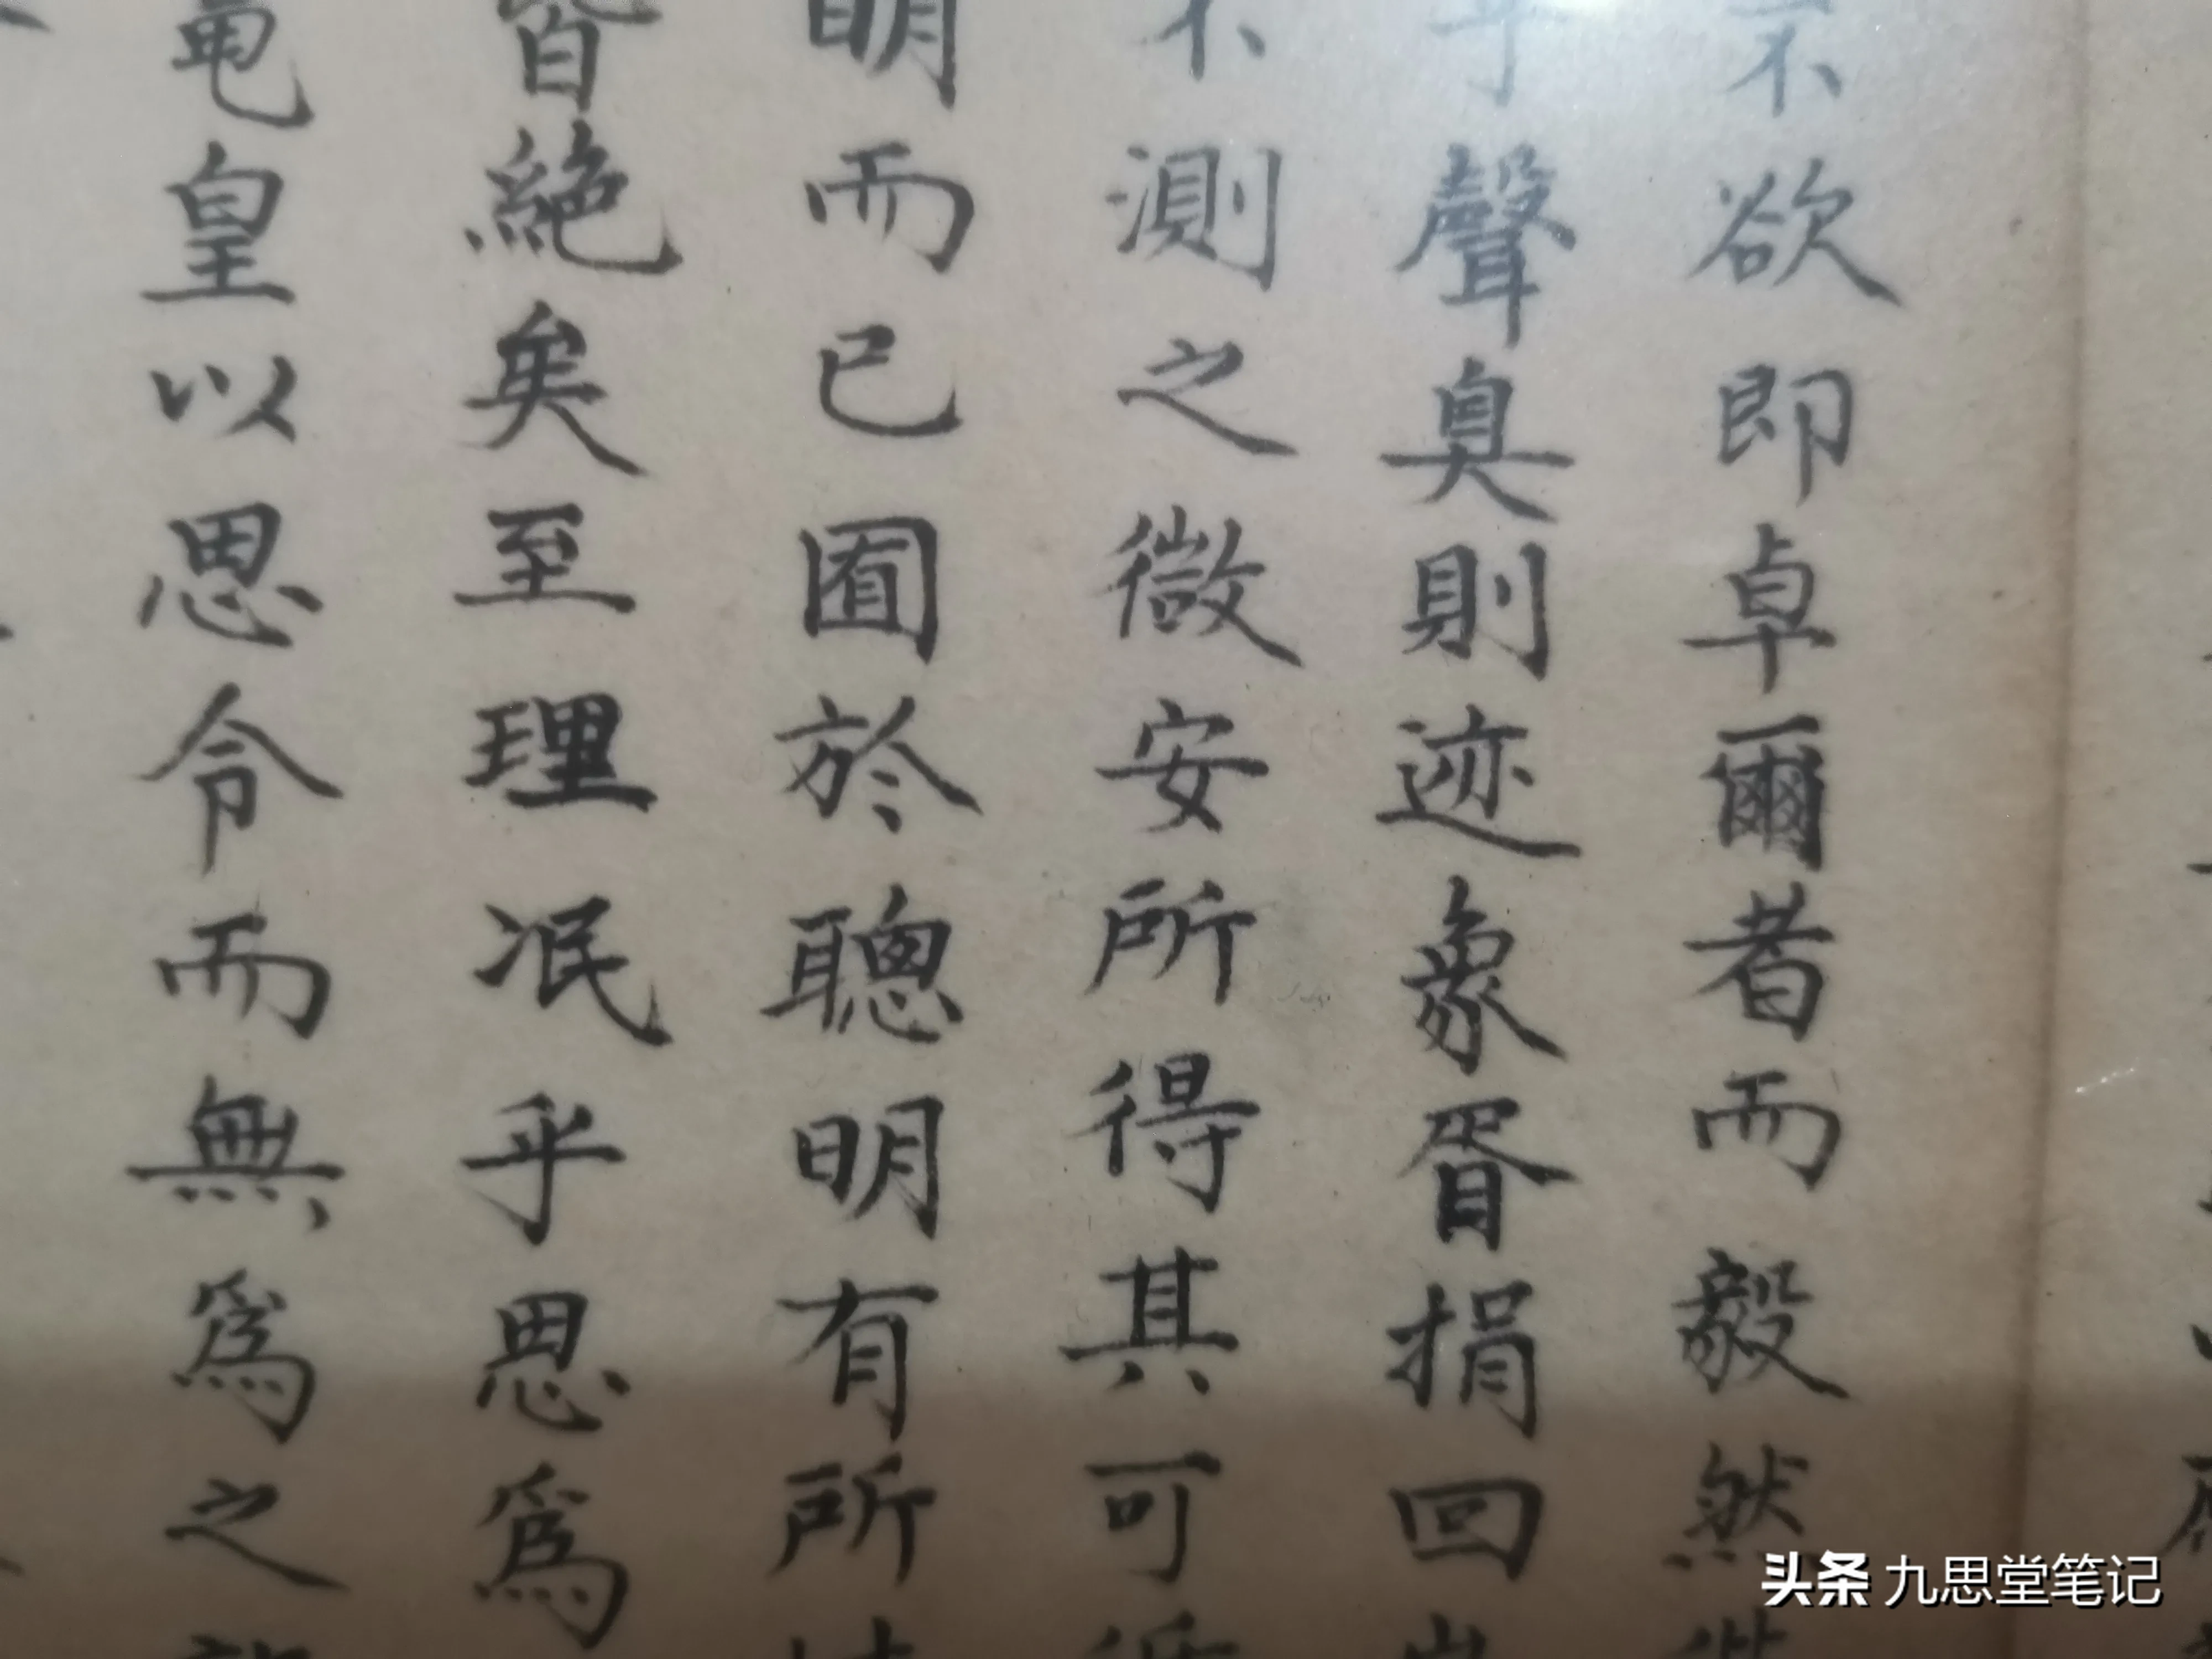 不欲即卓爾者而毅然
乎聲臭則迹象胥捐回
不測之微安所得其可
明而已囿於聰明有所
皆絕矣至理泯乎思爲
黽皇以思令而無爲之
头条 九思堂笔记